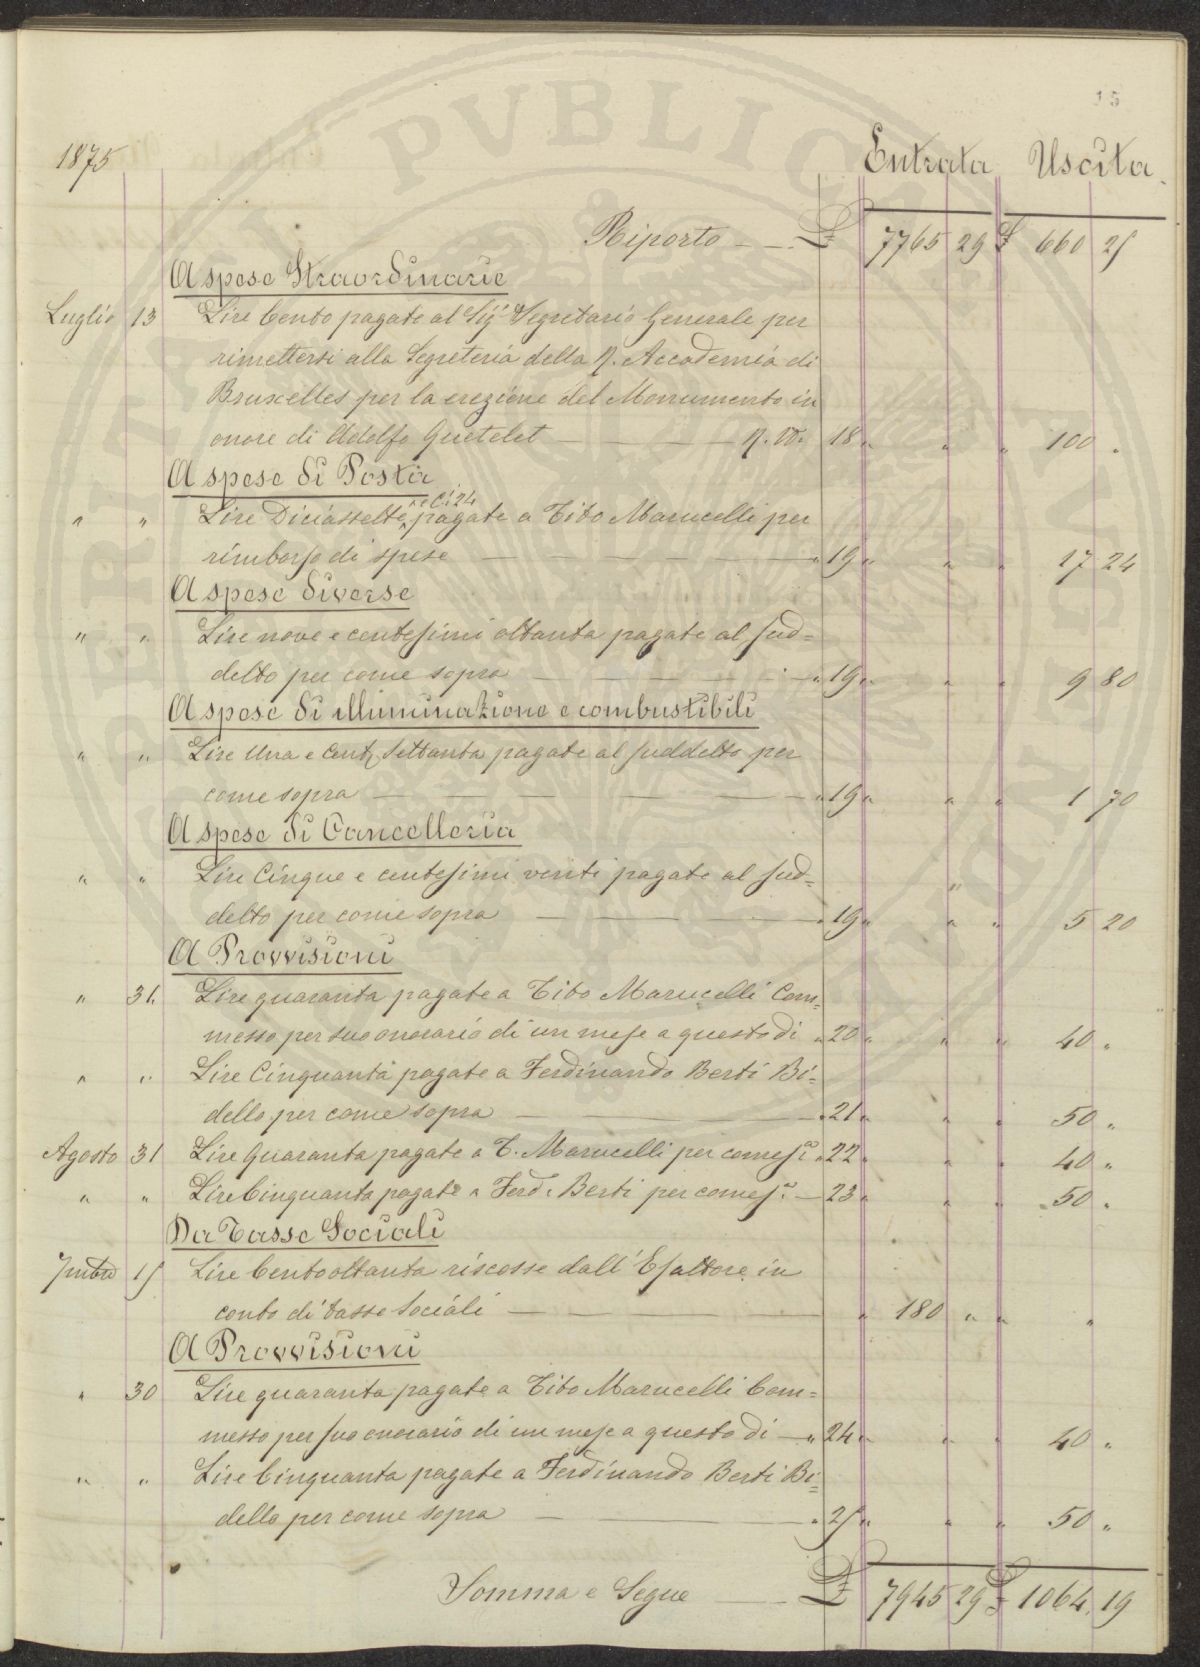 15
1875 Entrata Uscita
Riporto £ 7765 29 £ 660 25
A spese Straordinarie
Luglio 13 Lire Cento pagate al Sigr Segretario Generale per
rimettersi alla Segreteria della R. Accademia di
Bruxelles per la erezione del Monumento in
onore di Adolfo Quetelet — R. Vo. 18 " " " 100 "
A spese di Posta
e Ci 24
" " Lire Diciassette pagate a Tito Marucelli per
rimborso di spese — " 19 " " " 17 24
A spese diverse
" " Lire nove e centesimi ottanta pagate al sud=
detto per come sopra — " 19 " " " 9 80
A spese di illuminazione e combustibili
" " Lire Una e Cent. Settanta pagate al suddetto per
come sopra — " 19 " " " 1 70
A spese di Cancelleria
" " Lire Cinque e centesimi venti pagate al sud=
detto per come sopra — " 19 " " " 5 20
A Provvisioni
" 31. Lire quaranta pagate a Tito Marucelli Com=
messo per suo onorario di un mese a questo dì " 20 " " " 40 "
" " Lire Cinquanta pagate a Ferdinando Berti Bi=
dello per come sopra — " 21 " " " 50 "
Agosto 31 Lire Quaranta pagate a T. Marucelli per come sa " 22 " " " 40 "
" " Lire Cinquanta pagate a Ferd. Berti per come sa — 23 " " " 50 "
Da Tasse Sociali
7mbre 15 Lire Centoottanta riscosse dall'Esattore in
conto di tasse Sociali — " 180 " " "
A Provvisioni
" 30 Lire quaranta pagate a Tito Marucelli Com=
messo per suo onorario di un mese a questo dì — " 24 " " " 40 "
" " Lire Cinquanta pagate a Ferdinando Berti Bi=
dello per come sopra — " 25 " " " 50 "
Somma e Segue — £ 7945 29 £ 1064 19